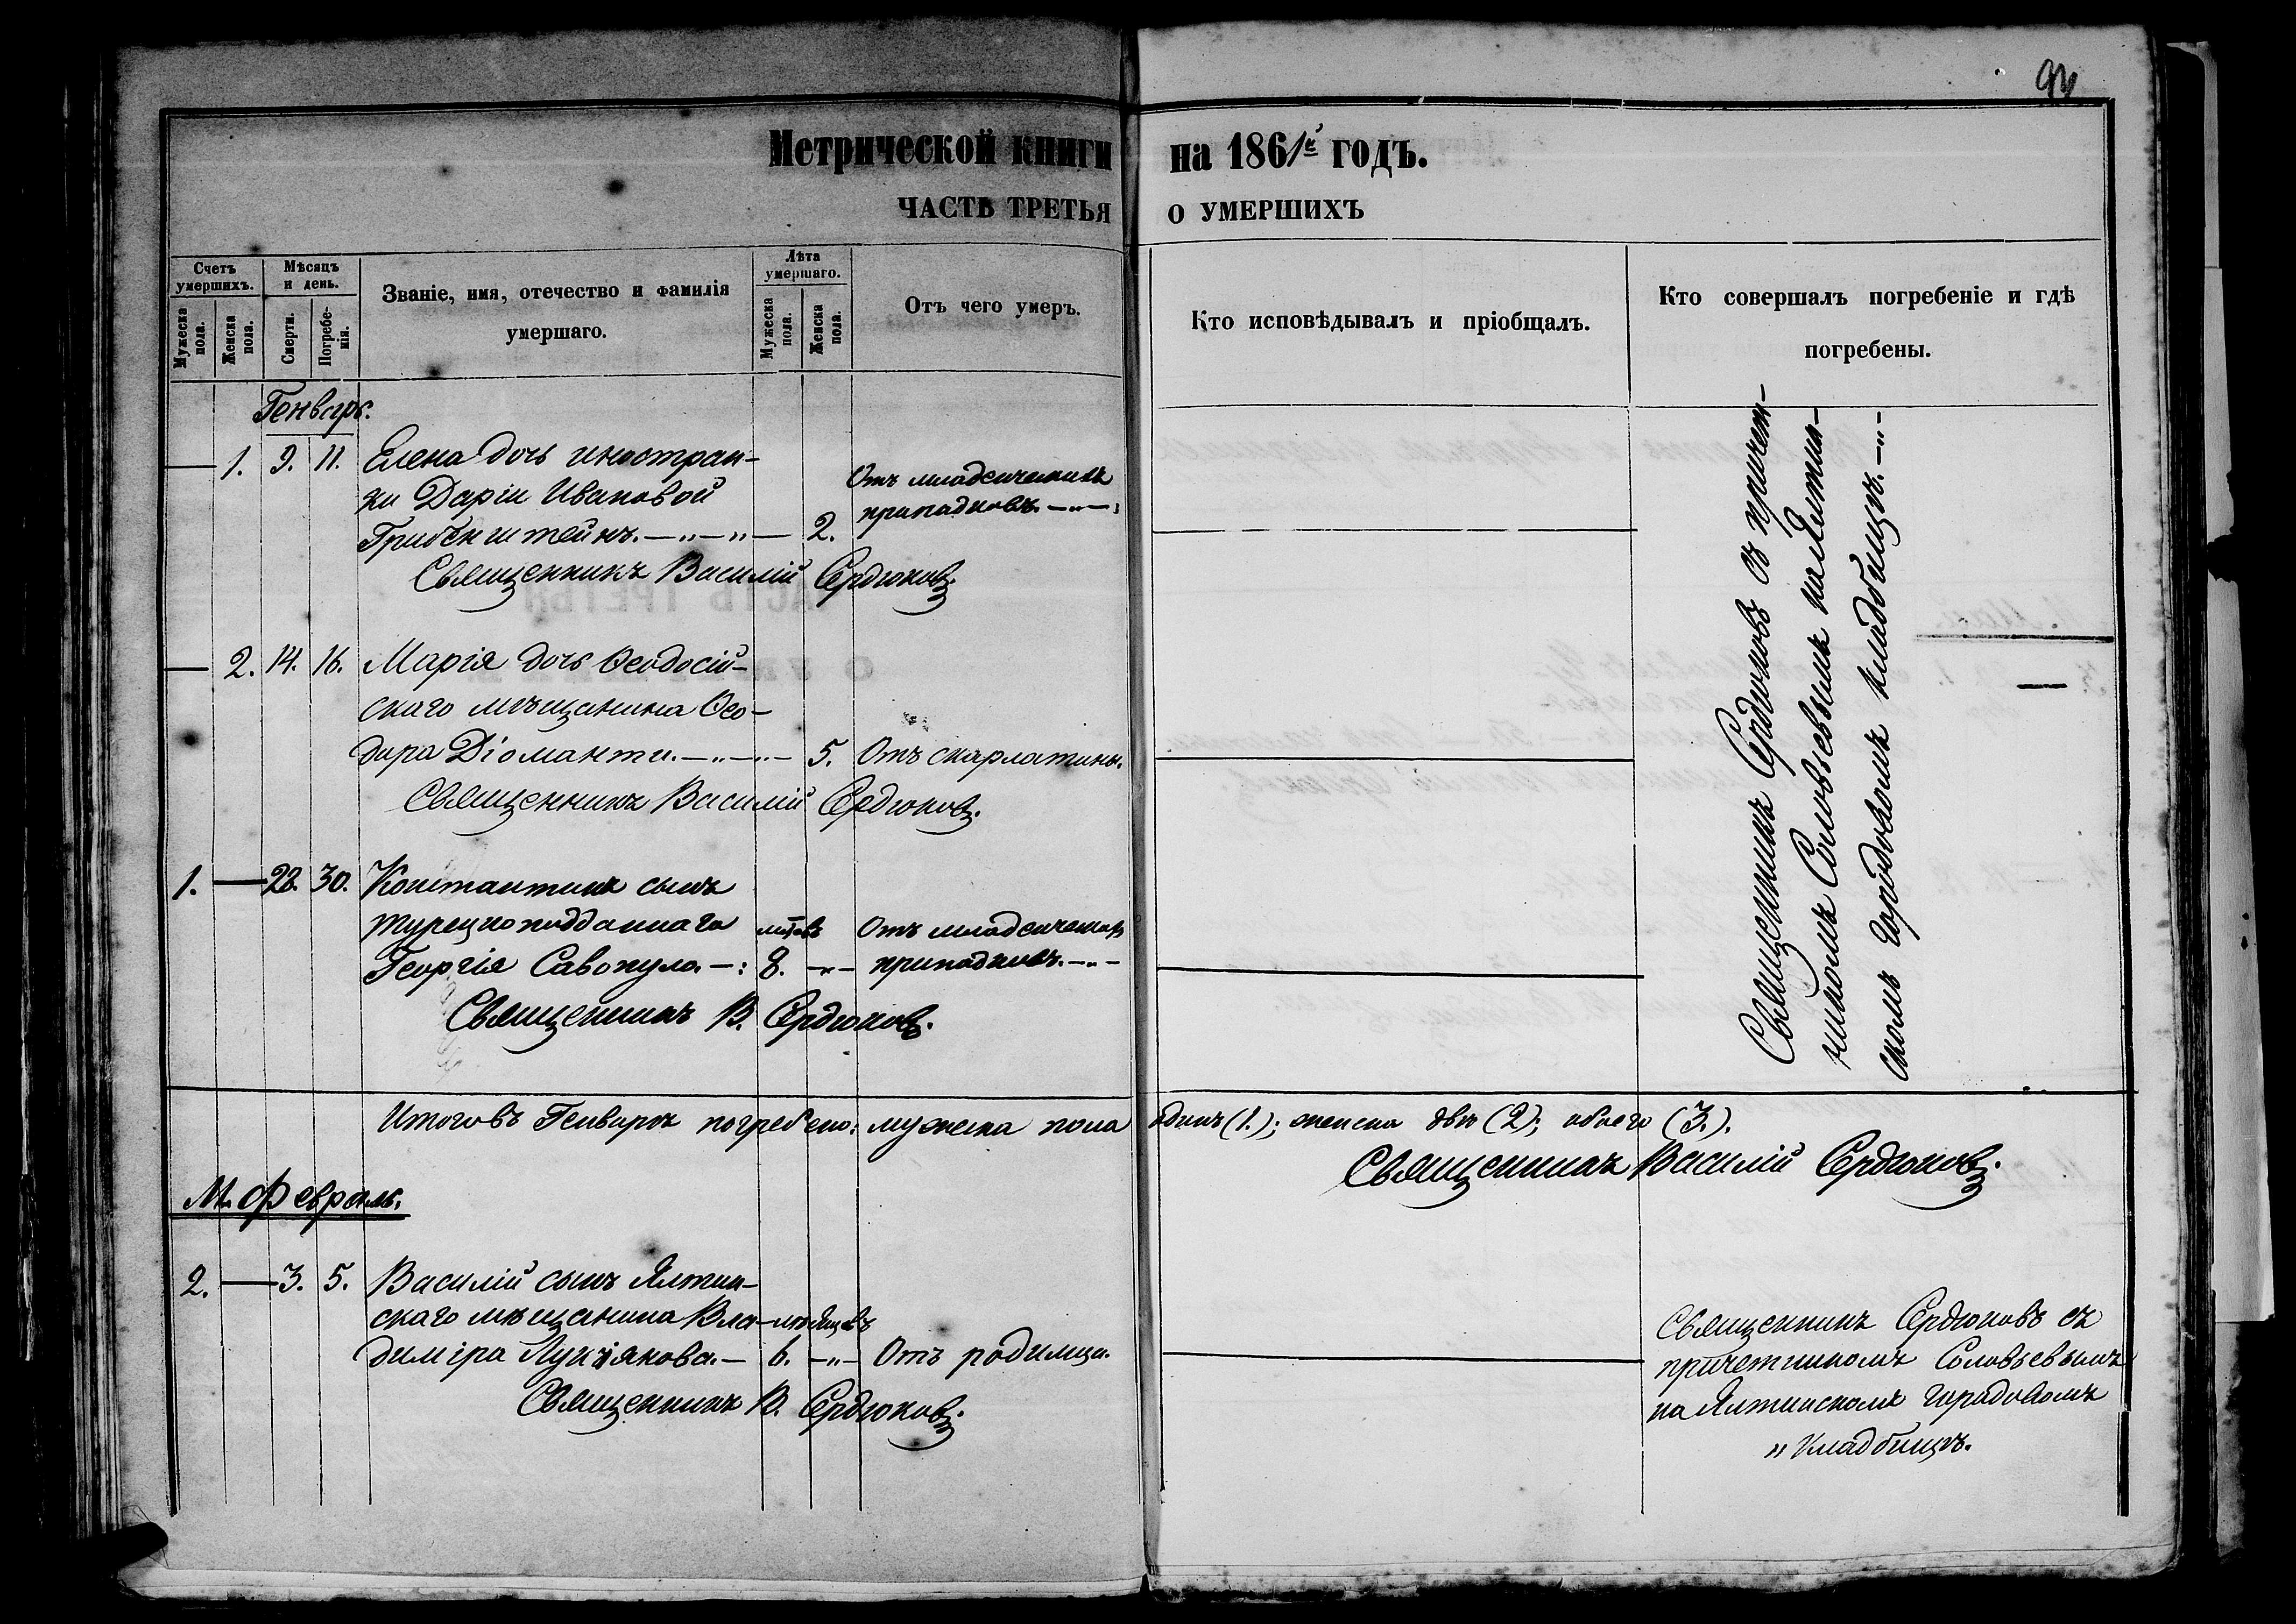 Метрической книги на 1861й годъ.
ЧАСТЬ ТРЕТЬЯ О УМЕРШИХЪ
Счетъ умершихъ.
Мужеска пола.
Женска пола.
Мѣсяцъ и день.
Смерти.
Погребе-
нія.
Званіе, имя, отечество и фамилія
умершаго.
Лѣта
умершаго.
Мужеска пола.
Женска пола.
Отъ чего умеръ.
Кто исповѣдывалъ и пріобщалъ.
Кто совершалъ погребеніе и гдѣ
погребены.
Генварь.
— 1. 9. 11. Елена дочь иностран-
ки Даріи Ивановой
Грибенштейнъ. —„—„— 2.
Отъ младенческихъ
припадковъ. —„—:
Священникъ Василій Сердюковъ.
— 2. 14. 16. Марія дочь Ѳеодосій-
скаго мѣщанина Ѳео-
дора Діоманти. —„—„— 5. Отъ скарлатины.
Священникъ Василій Сердюковъ.
1. — 28. 30. Константинъ сынъ
турецкоподданнаго
Георгія Савопуло. —: 8. —„—
Отъ младенческихъ
припадковъ. —„—
Священникъ В. Сердюковъ.
Священникъ Сердюковъ съ причет-
никомъ Соловьевымъ на Ялтин-
скомъ городовомъ кладбищѣ. —„—
Итого въ Генварѣ погребено: мужеска пола одинъ (1.); женска двѣ (2); обоего (3.).
Священникъ Василій Сердюковъ.
М. Февраль.
2. — 3. 5. Василій сынъ Ялтин-
скаго мѣщанина Вла- мѣсяцевъ
диміра Лукіянова. — 6. —„— Отъ родимца.
Священникъ В. Сердюковъ.
Священникъ Сердюковъ съ
причетникомъ Соловьевымъ
на Ялтинскомъ городовомъ
„ кладбищѣ.